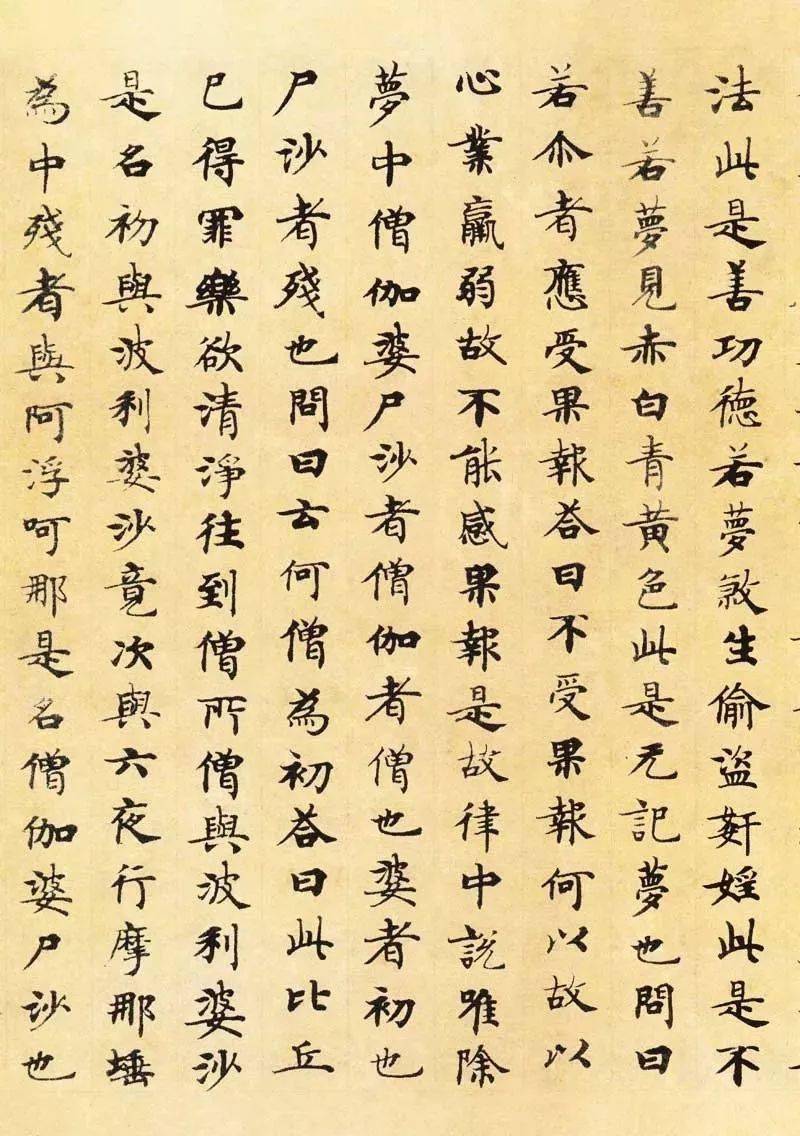 法此是善功德若夢煞生偷盜姧婬此是不
善若夢見赤白青黃色此是无記夢也問曰
若尒者應受果報荅曰不受果報何以故以
心業羸弱故不能感果報是故律中說唯除
夢中僧伽婆尸沙者僧伽者僧也婆者初也
尸沙者殘也問曰云何僧為初荅曰此比丘
已得罪樂欲清淨往到僧所僧與波利婆沙
是名初與波利婆沙竟次與六夜行摩那埵
為中殘者與阿浮呵那是名僧伽婆尸沙也